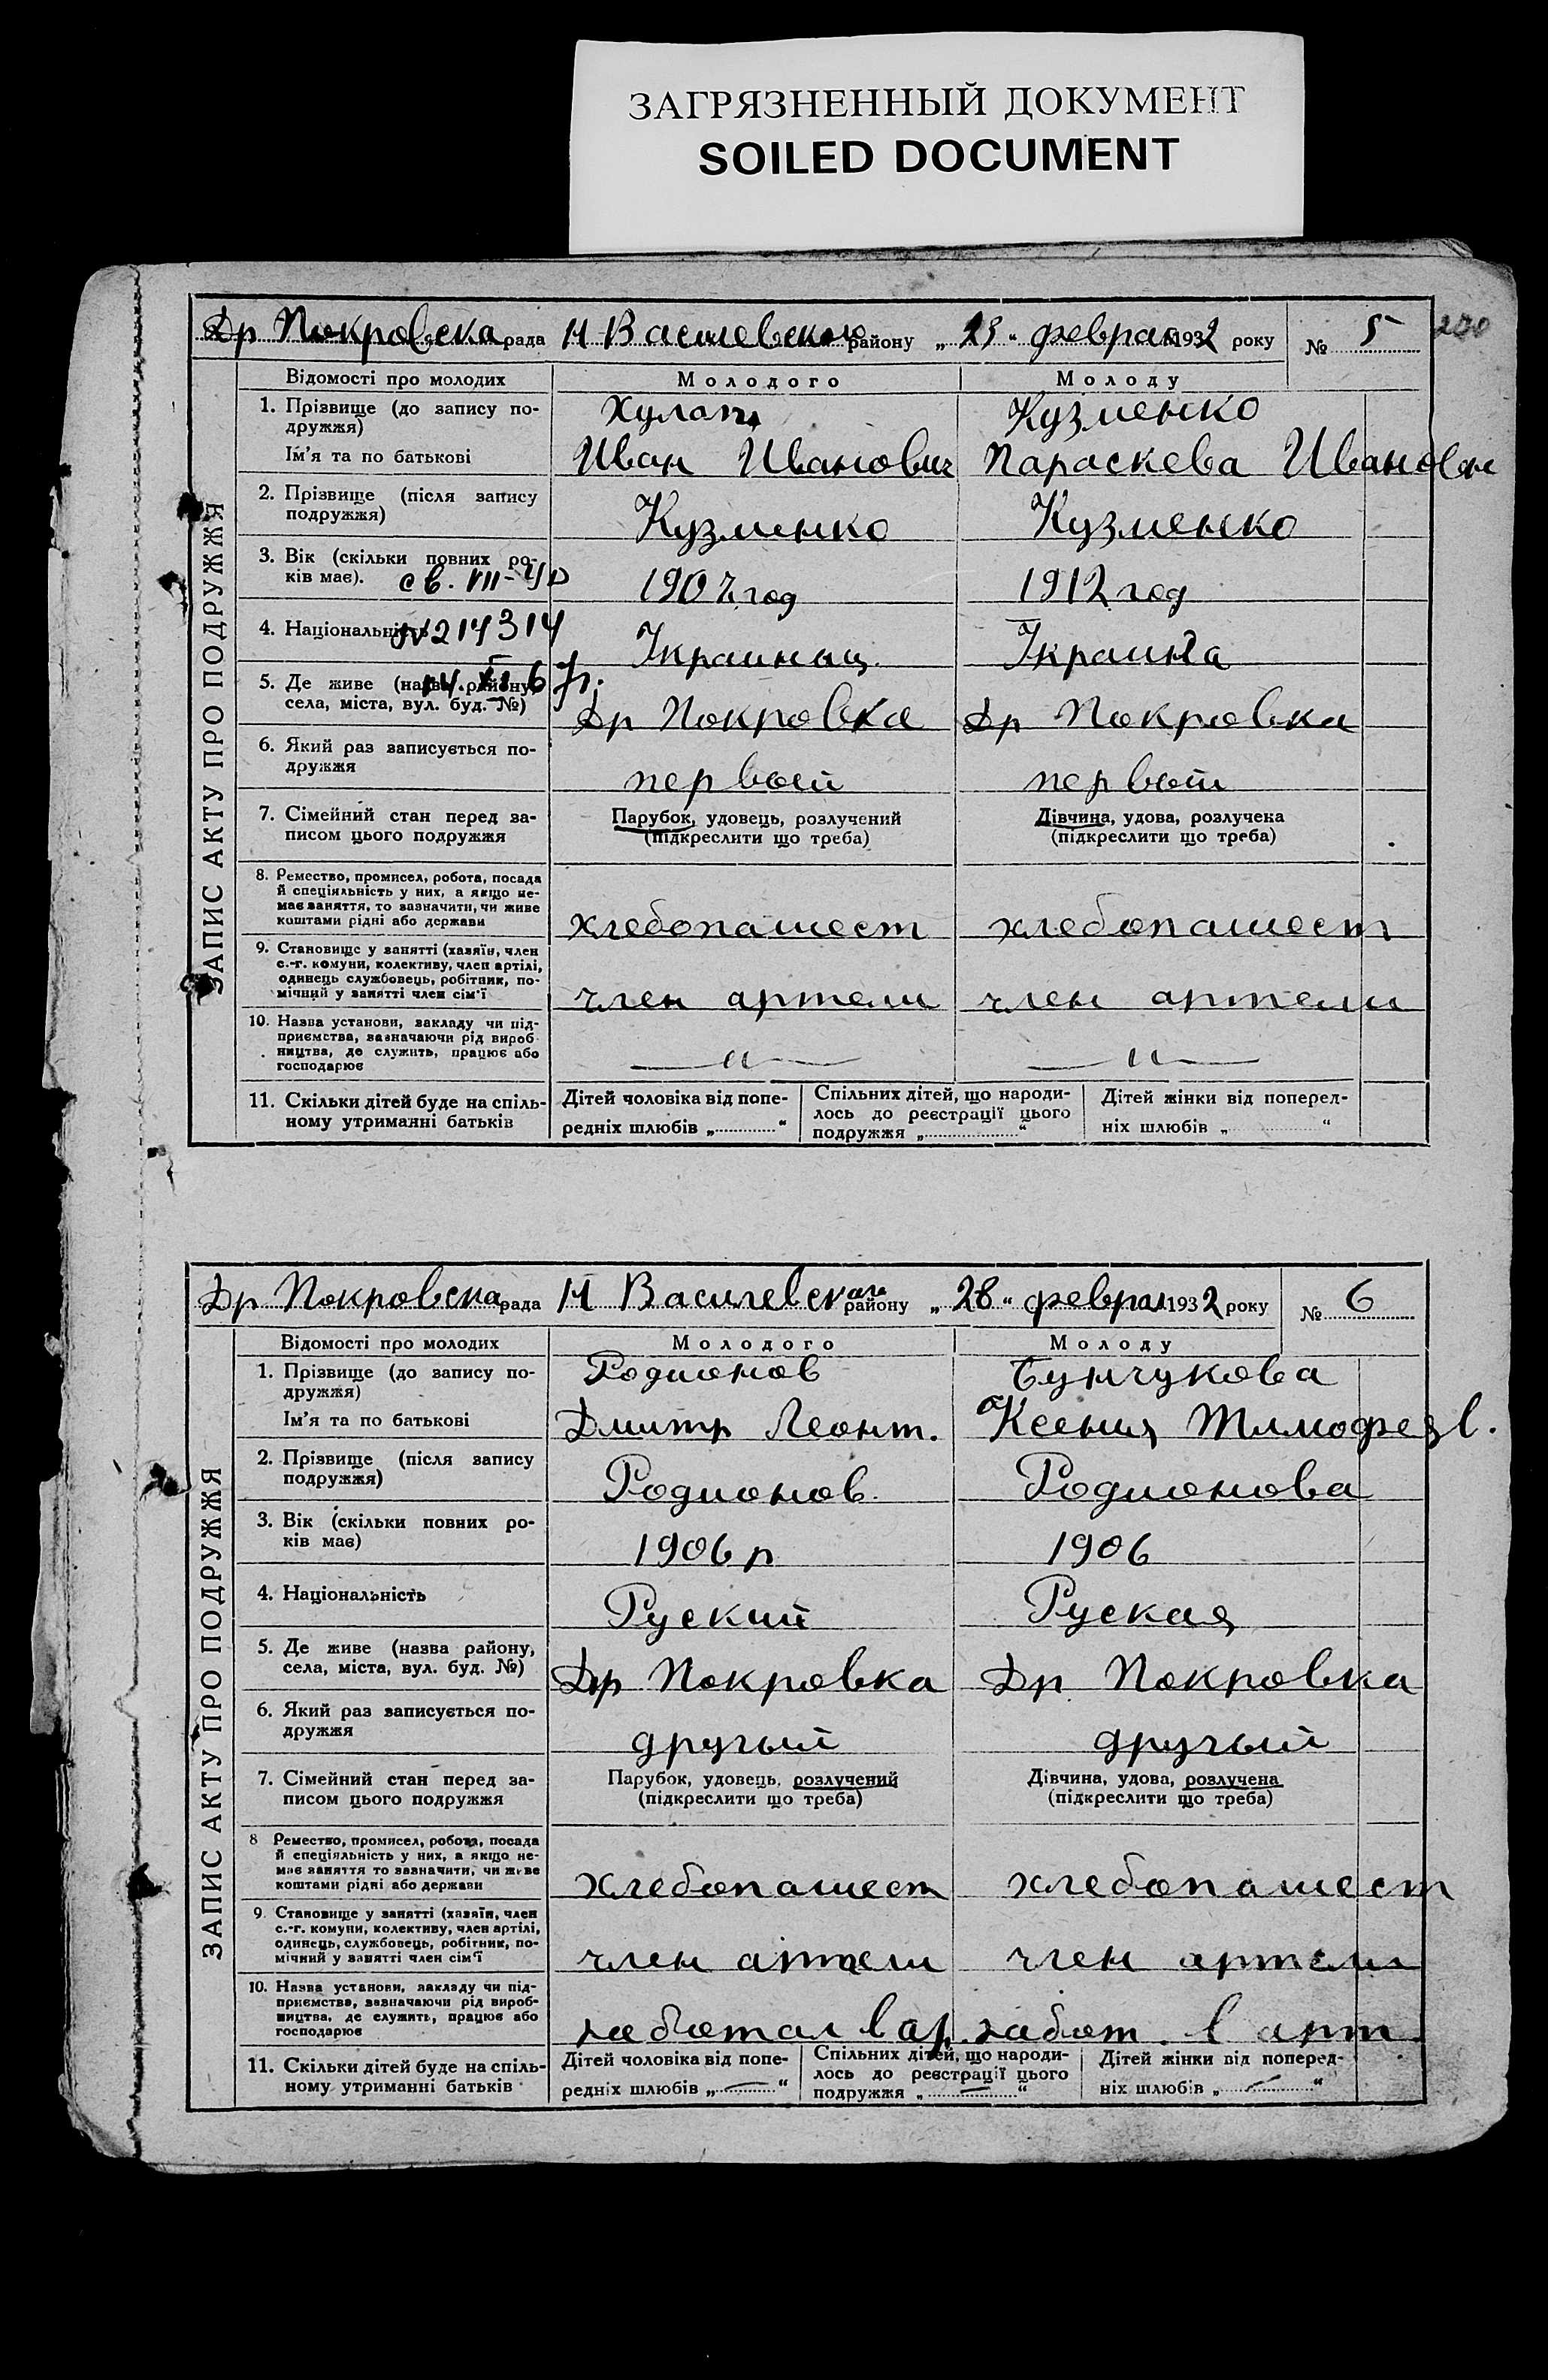 ЗАГРЯЗНЕННЫЙ ДОКУМЕНТ
SOILED DOCUMENT
Др Покровска рада Н Василевского району „ 23 “ феврал 1932 року № 5
200
ЗАПИС АКТУ ПРО ПОДРУЖЖЯ
Відомості про молодих Молодого Молоду
1. Прізвище (до запису по-
дружжя) Кузменко
Ім'я та по батькові Иван Иванович Параскева Ивановн
2. Прізвище (після запису
подружжя) Кузменко Кузменко
3. Вік (скільки повних ро-
ків має). св. VII-УР 1907 год 1912 год
4. Національність №214314 Украинец Украинка
5. Де живе (назва району,
села, міста, вул. буд. №) Др Покровка Др Покровка
6. Який раз записується по-
дружжя первый первый
7. Сімейний стан перед за-
писом цього подружжя
Парубок, удовець, розлучений
(підкреслити що треба)
Дівчина, удова, розлучена
(підкреслити що треба)
8. Ремество, промисел, робота, посада
й спеціяльність у них, а якщо не-
має заняття, то зазначити, чи живе
коштами рідні або держави хлебопашест хлебопашест
9. Становище у занятті (хазяїн, член
с.-г. комуни, колективу, член артілі,
одинець службовець, робітник, по-
мічний у занятті член сім'ї член артели член артели
10. Назва установи, закладу чи під-
приємства, зазначаючи рід вироб-
ництва, де служить, працює або
господарює — „ — — „ —
11. Скільки дітей буде на спіль-
ному утриманні батьків
Дітей чоловіка від попе-
редніх шлюбів „ “
Спільних дітей, що народи-
лось до реєстрації цього
подружжя „ “
Дітей жінки від поперед-
ніх шлюбів „ “
Др Покровска рада Н Василевскаго району „ 28 “ феврал 1932 року № 6
ЗАПИС АКТУ ПРО ПОДРУЖЖЯ
Відомості про молодих Молодого Молоду
1. Прізвище (до запису по-
дружжя) Родионов Бунчукова
Ім'я та по батькові Дмитр Леонт. Ксения Тимофеев.
2. Прізвище (після запису
подружжя) Родионов Родионова
3. Вік (скільки повних ро-
ків має) 1906 р 1906
4. Національність Руский Руская
5. Де живе (назва району,
села, міста, вул. буд. №) Др Покровка Др Покровка
6. Який раз записується по-
дружжя другый другый
7. Сімейний стан перед за-
писом цього подружжя
Парубок, удовець, розлучений
(підкреслити що треба)
Дівчина, удова, розлучена
(підкреслити що треба)
8 Ремество, промисел, робота, посада
й спеціяльність у них, а якщо не-
має заняття то зазначити, чи живе
коштами рідні або держави хлебопашест хлебопашест
9. Становище у занятті (хазяїн, член
с.-г. комуни, колективу, член артілі,
одинець, службовець, робітник, по-
мічний у занятті член сім'ї член артели член артели
10. Назва установи, закладу чи під-
приємства, зазначаючи рід вироб-
ництва, де служить, працює або
господарює работал в ар. работ. в арт.
11. Скільки дітей буде на спіль-
ному утриманні батьків
Дітей чоловіка від попе-
редніх шлюбів „ — “
Спільних дітей, що народи-
лось до реєстрації цього
подружжя „ — “
Дітей жінки від поперед-
ніх шлюбів „ — “